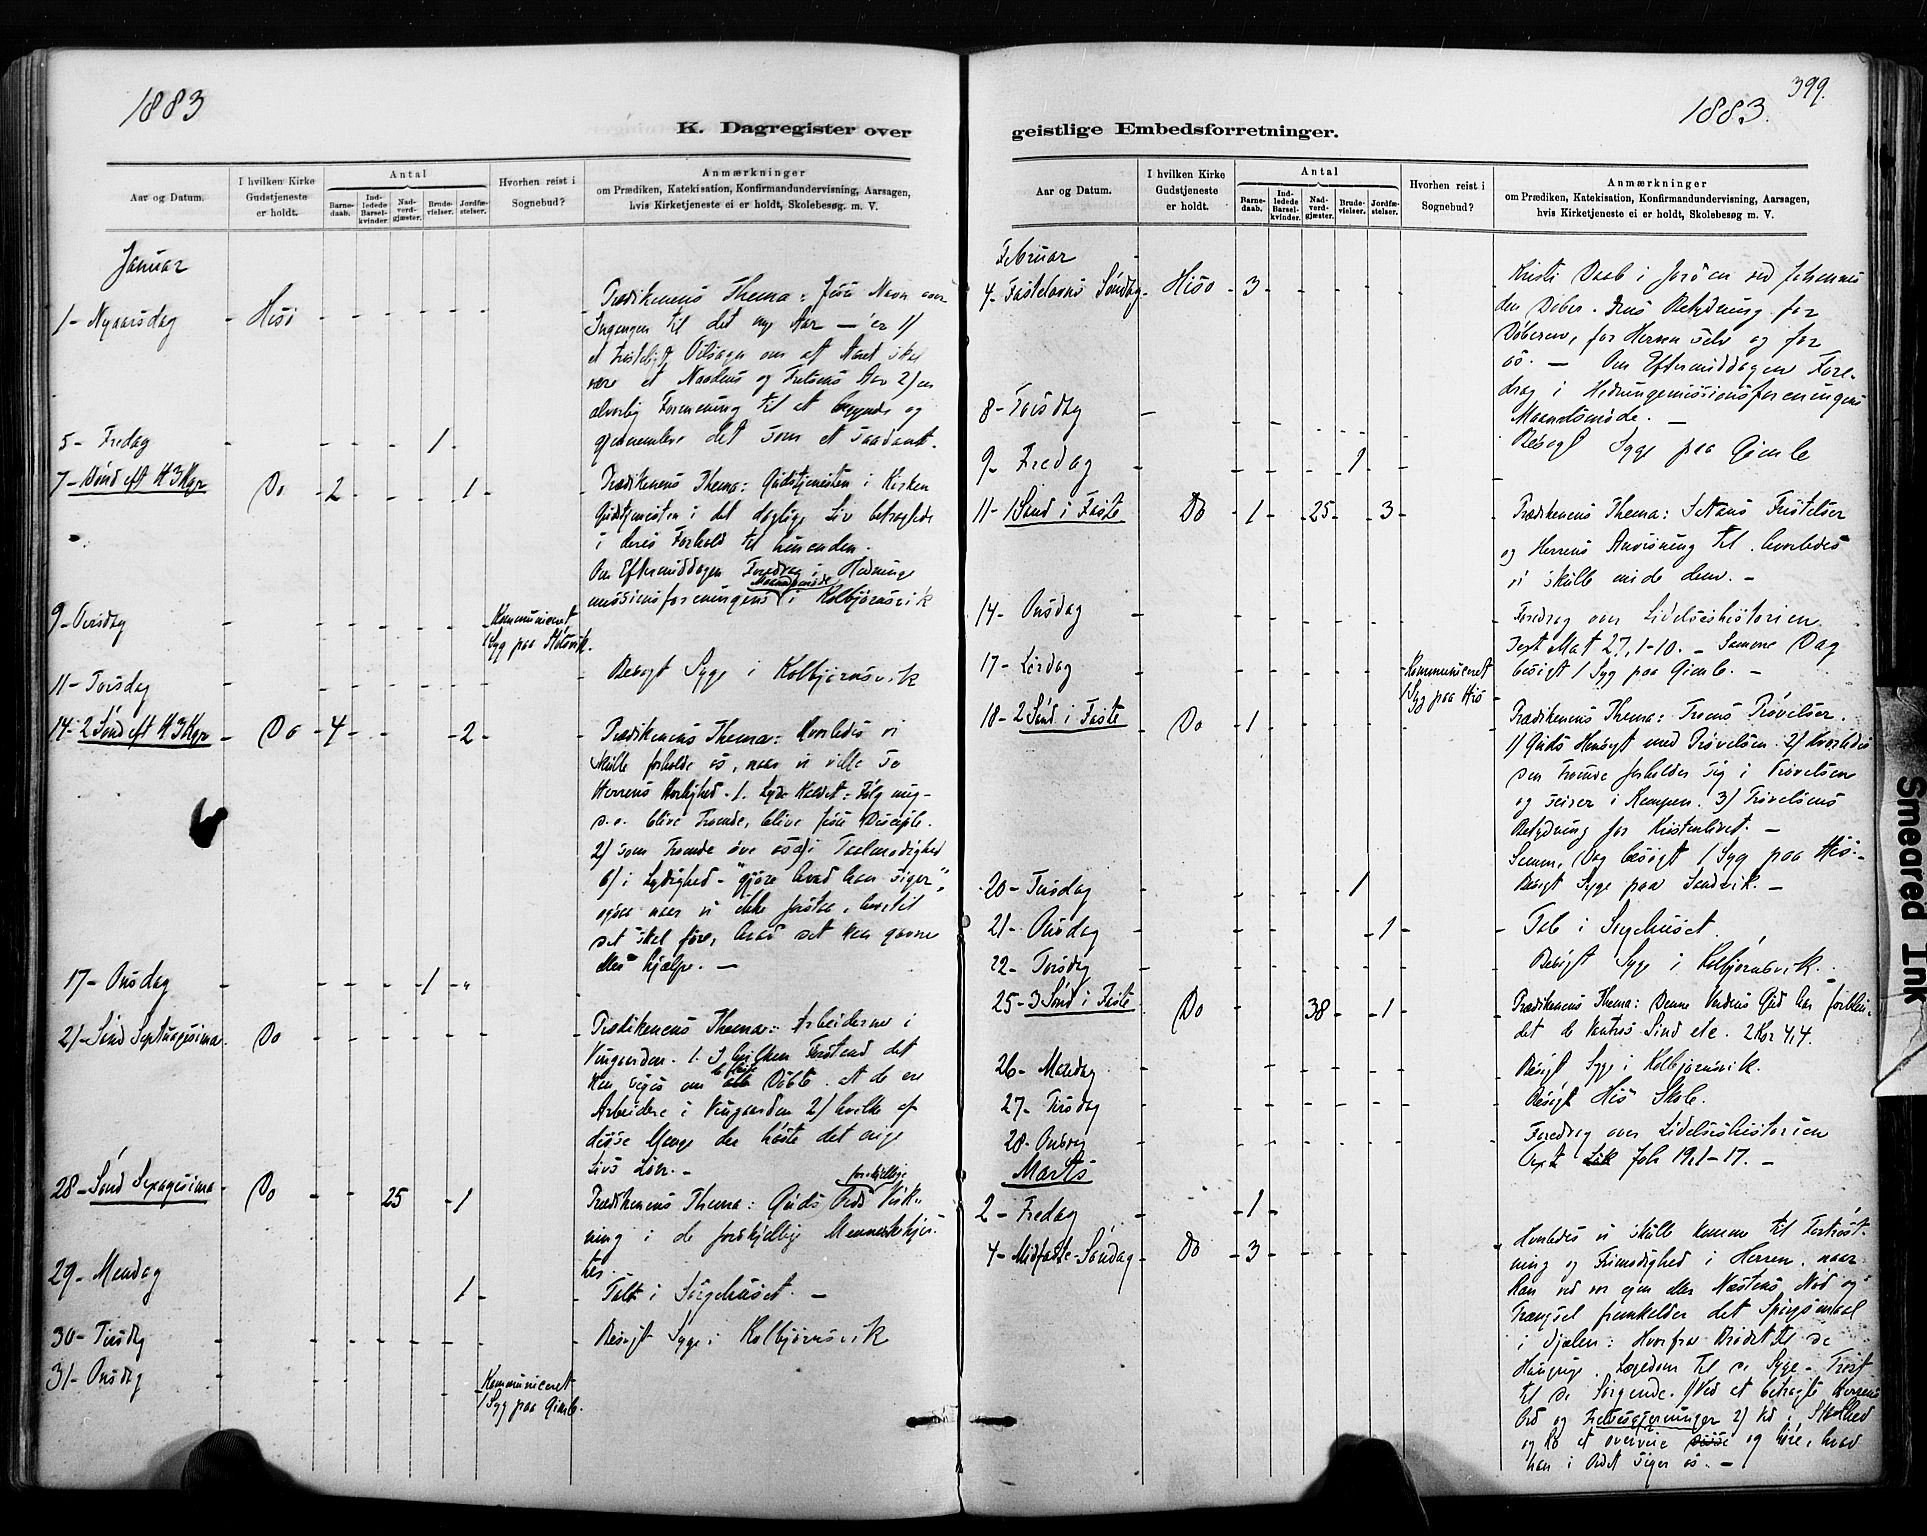 1883
K. Dagregister over
Aar og Datum.
I hvilken Kirke
Gudstjeneste
er holdt.
Antal
Barne-
daab.
Ind-
ledede
Barsel-
kvinder.
Nad-
verd-
gjæster.
Brude-
vielser.
Jordfæ-
stelser.
Hvorhen reist i
Sognebud?
Anmærkninger
om Prædiken, Katekisation, Konfirmandundervisning, Aarsagen,
hvis Kirketjeneste ei er holdt, Skolebesøg m. V.
Januar
1- Nyaarsdag - Hisö - - - - - -
Prædikenens Thema: Jesu Navn over
Ingangen til det nye Aar — er 1)
et Tilsagn om at Aaret skal
være et Naadens og Frelsens Aar 2) en
alvorlig Formaning til at begynde og
gjennemleve det som et saadant.
5- Fredag - - - - 1 -
7- Sönd eft H 3 Kgr Do - 2 - - - 1 -
Prædikenens Thema: Gudstjenesten i Kirken
Gudstjenesten i det daglige Liv betragtede
i deres Forhold til hinanden.
Om Eftermiddagen Foredrag i Hedninge
missionsforeningens Maanedsmöde i Kolbjörnsvik
9- Tirsdag - - - - - -
Kommuniceret
1 Syg paa
11- Torsdag - - - - - -
Besögt Syge i Kolbjörnsvik
14- 2 Sönd eft H 3 Kgr - Do - 4 - - - 2 -
Prædikenens Thema: Hvorledes vi
skulle forholde os, naar vi ville se
Herrens Herlighed. 1. Lyde Kaldet: Fölg mig -
d.e. blive Troende, blive Jesu Disciple.
2) som Troende öve os a) i Taalmodighed
b) i Lydighed - "gjöre hvad han siger",
ogsaa naar vi ikke forstaa, hvortil
det skal före, hvad det kan gavne
eller hjælpe. —
17- Onsdag - - - - 1 -
21- Sönd Septuagesima - Do - - - - - -
Prædikenens Thema: Arbeiderne i
Vingaarden. 1. I hvilken Forstand det
kan siges om de fleste Döbte at de ere
Arbeidere i Vingaarden 2) hvilke af
disse Mange der höste det evige
Livs Lön. -
28- Sönd Sexagesima - Do - - 25 - 1 -
Prædikenens Thema: Guds Ords forskjellige Virk-
ning i de forskjellige Menneskehjer-
ter.
29- Mandag 1 -
Talt i Sörgehuset. —
30- Tirsdag - - - - - -
Besögt Syge i Kolbjörnsvik
31- Onsdag - - - - -
Kommuniceret
1 Syg paa Gimle.
399.
1883.
geistlige Embedsforretninger.
Aar og Datum.
I hvilken Kirke
Gudstjeneste
er holdt.
Antal
Barne-
daab.
Ind-
ledede
Barsel-
kvinder.
Nad-
verd-
gjæster.
Brude-
vielser.
Jordfæ-
stelser.
Hvorhen reist i
Sognebud?
Anmærkninger
om Prædiken, Katekisation, Konfirmandundervisning, Aarsagen,
hvis Kirketjeneste ei er holdt, Skolebesøg m. V.
Februar
4- Fastelavns Söndag - Hisö - 3 - - - - -
Kristi Daab i Jordan ved Johannes
den Döber. Dens Betydning for
Döberen, for Herren selv og for
os. — Om Eftermiddagen Fore-
drag i Hedningemissionsforeningens
Maanedsmöde. —
8- Torsdag - - - - - -
Besögt Syge paa Gimle
9- Fredag - - - - 1 - -
11- 1 Sönd i Faste - Do - 1 - 25 - 3 -
Prædikenens Thema: Satans Fristelser
og Herrens Anvisning til hvorledes
vi skulle möde dem. -
14- Onsdag - - - - - -
Foredrag over Lidelseshistorien
Text Mat 27, 1-10. - Samme Dag
besögt 1 Syg paa Gimle. -
17- Lördag - - - - - -
Kommuniceret
1 Syg paa Hisö
18- 2 Sönd i Faste - Do - 1 - - - - -
Prædikenens Thema: Troens Prövelser.
1) Guds Hensigt med Prövelsen. 2) Hvorledes
den Troende forholder sig i Prövelsen
og seirer i Kampen. 3) Prövelsens
Betydning for Kristenlivet. —
Samme Dag besögt 1 Syg paa Hisö -
20- Tirsdag - - - - 1 -
Besögt Syge paa Sandvik. -
21- Onsdag - - - - - 1 -
Tale i Sörgehuset.
22- Torsdag - - - - - -
Besögt Syge i Kolbjörnsvik.
25- 3 Sönd i Faste - Do - - 38 - 1 -
Prædikenens Thema: Denne Verdens Gud har forblin-
det de Vantros Sind etc. 2 Kor 4,4.
26- Mandag - - - - - -
Besögt Syge i Kolbjörnsvik.
27- Tirsdag - - - - - -
Besögt Hisö Skole.
28- Onsdag - - - - - -
Foredrag over Lidelseshistorien
Text Joh 19,1-17. -
Marts
2- Fredag - - 1 -
4- Midfaste Söndag - Do - 3 - - - - -
Hvorledes vi skulle komme til Fortröst-
ning og Frimodighed i Herren, naar
Han ved vor egen eller Næstens Nöd og
Trængsel fremkalder det Spörgsmaal
i Sjælen: Hvorfra Bröd til de
Hungrige. Lægedom til de Syge - Tröst
til de Sörgende. 1) Ved at betragte Herrens
Ord og Frelsesgjerninger 2) Ved i Stilhed
og Ro at overveie disse og höre, hvad
han i Ordet siger os. —
Smeared Ink